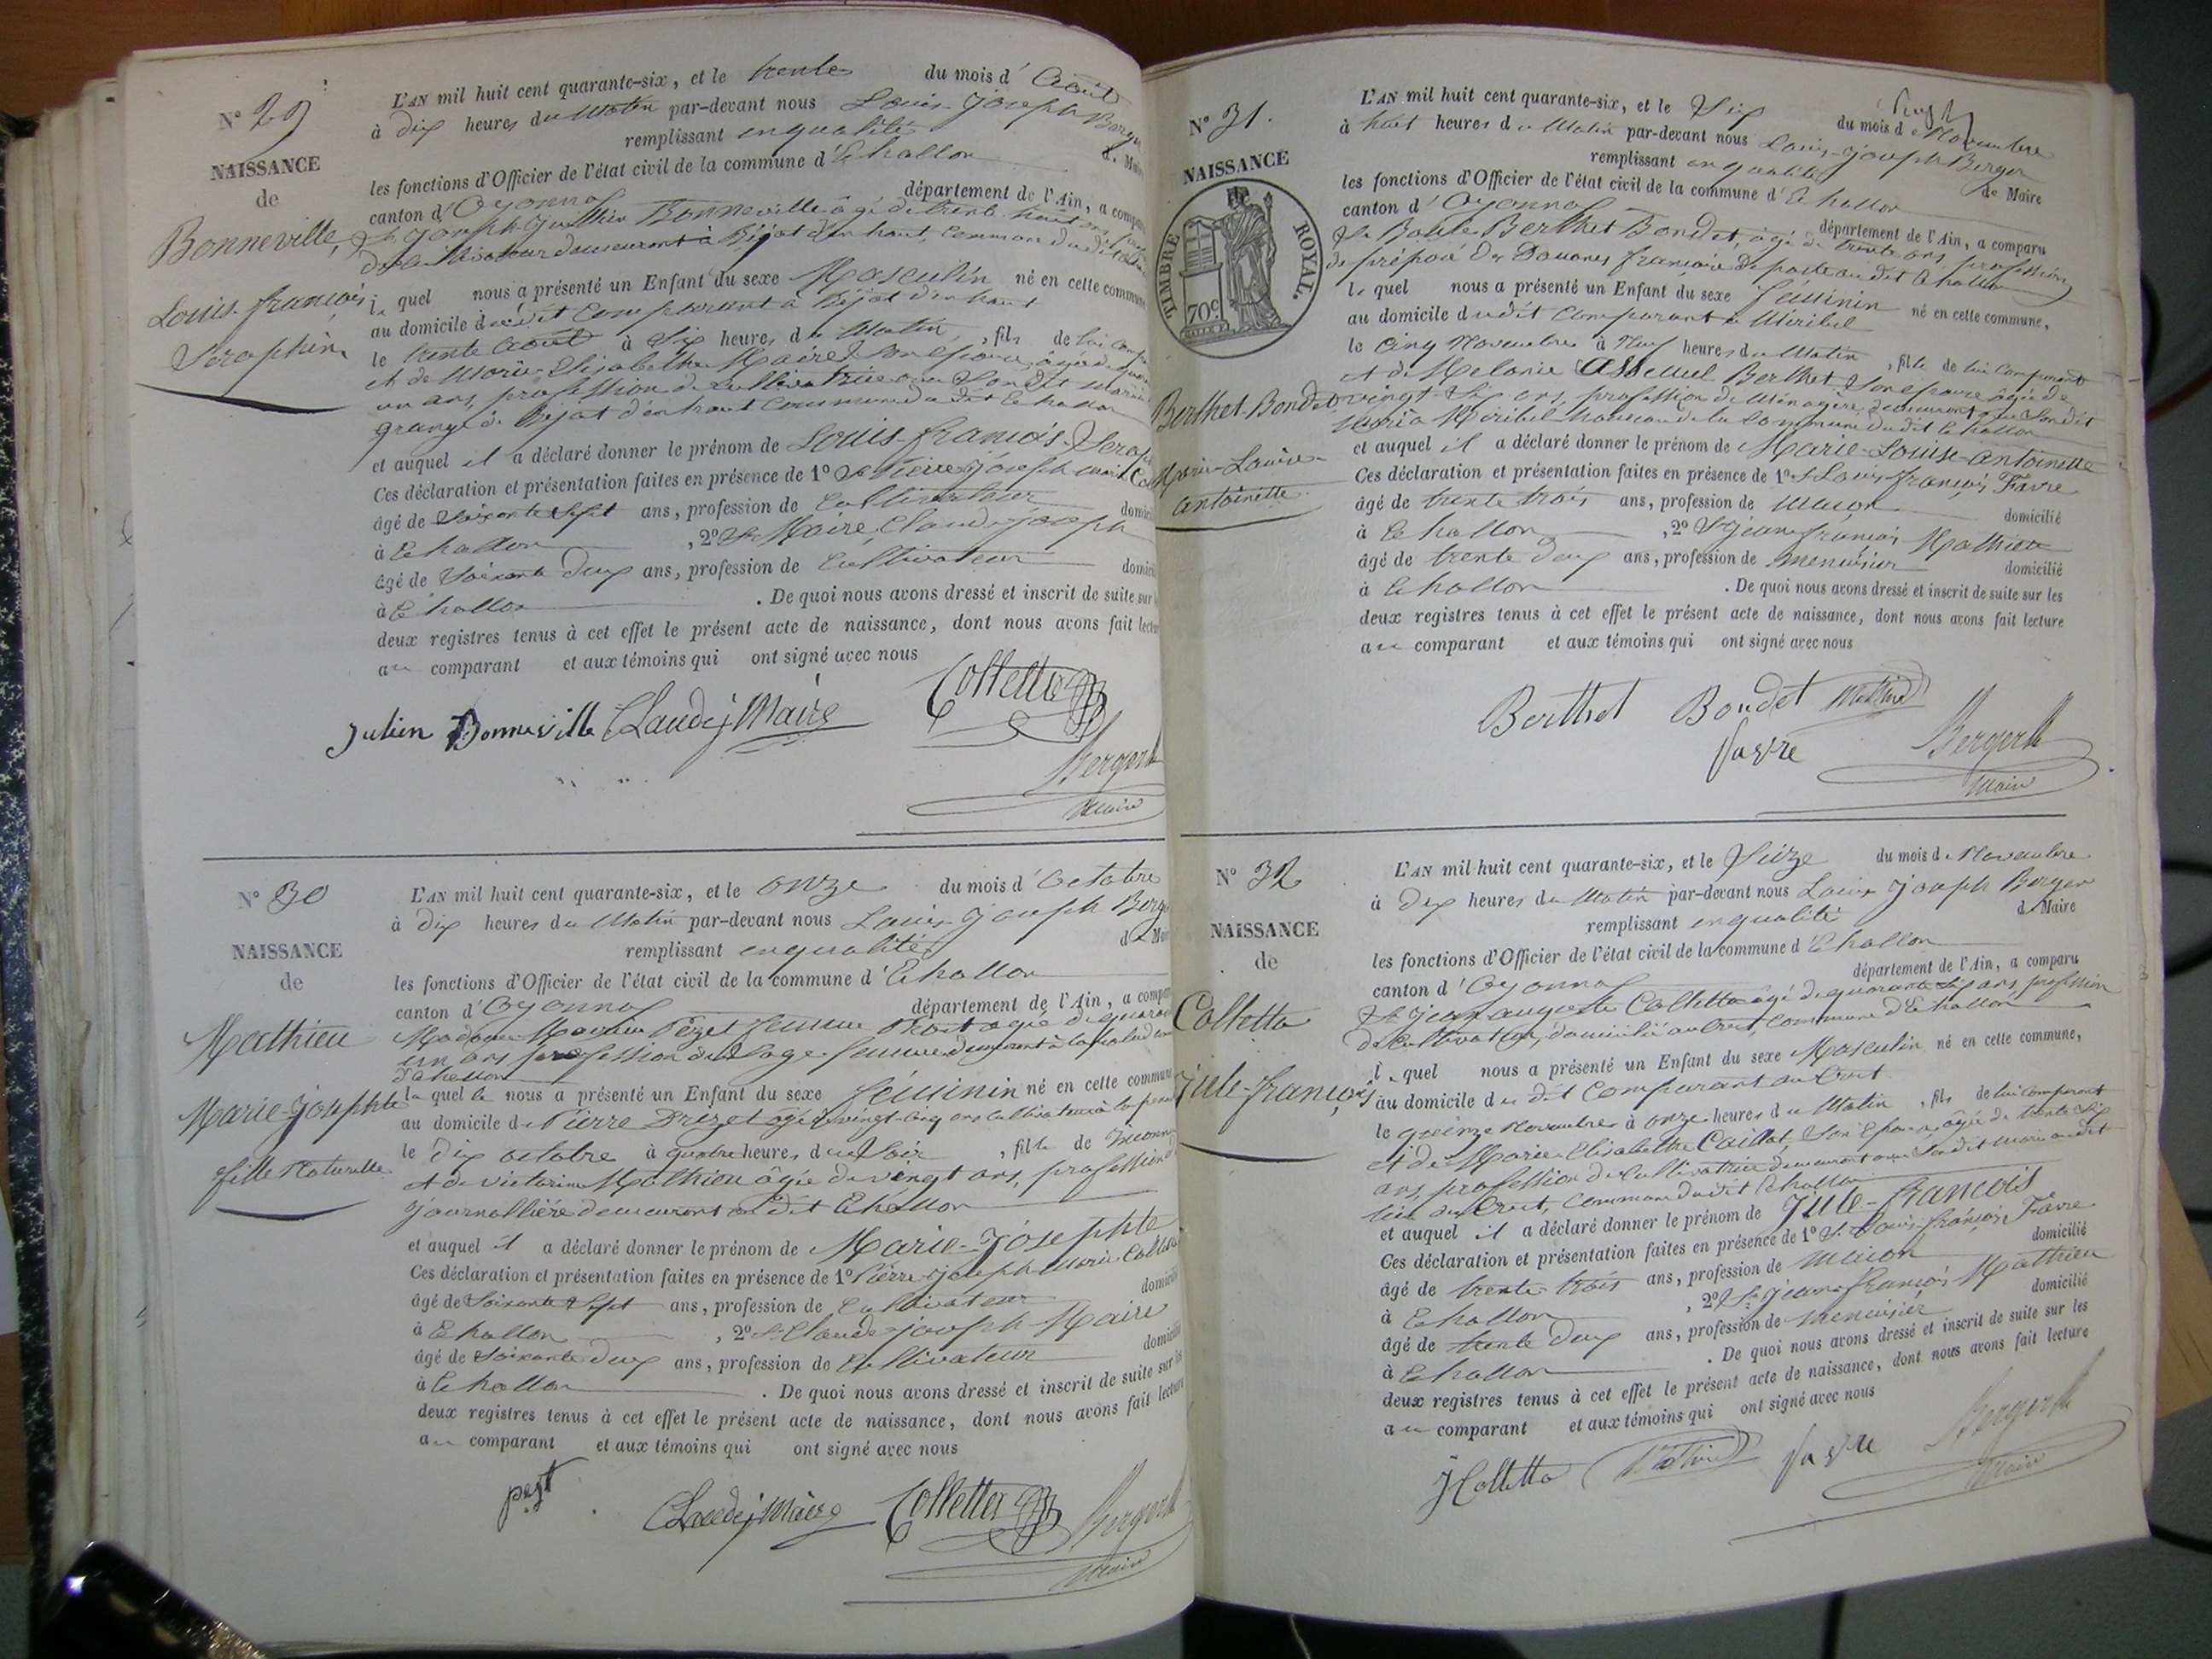 N° 29
NAISSANCE
de
Bonneville,
Louis-françois
Seraphin
L'AN mil huit cent quarante-six, et le trente du mois d'Août
à dix heures du Matin par-devant nous Louis-Joseph
remplissant en qualité de
les fonctions d'Officier de l'état civil de la commune d'Echallon
canton d'Oyonnax département de l'Ain, a
Joseph Bonneville âgé de trente huit ans
demeurant à Bejat d'en haut, Commune dudit
lequel nous a présenté un Enfant du sexe Masculin né en cette
au domicile dudit Comparant à Bejat d'en haut
le trente Août à Six heures du Matin, fils de lui
et de Marie-Elisabethe Maire Son épouse âgée de
un ans, profession de Cultivatrice avec Son dit
grange de Bejat d'en haut Commune du dit Echallon
et auquel il a déclaré donner le prénom de Louis-françois-
Ces déclaration et présentation faites en présence de 1° Sr Pierre joseph marie
âgé de Soixante Sept ans, profession de Cultivateur
à Echallon, 2° Sr Maire, Claude joseph
âgé de Soixante deux ans, profession de Cultivateur
à Echallon. De quoi nous avons dressé et inscrit de suite sur
deux registres tenus à cet effet le présent acte de naissance, dont nous avons fait
au comparant et aux témoins qui ont signé avec nous
Julien Bonneville Claude j Maire Colletta
Berger
Maire
N° 30
NAISSANCE
de
Mathieu
Marie-Josephte
fille Naturelle
L'AN mil huit cent quarante-six, et le onze du mois d'Octobre
à dix heures du Matin par-devant nous Louis Joseph
remplissant en qualité de
les fonctions d'Officier de l'état civil de la commune d'Echallon
canton d'Oyonnax département de l'Ain, a
Madame Pezet femme agée de
un ans profession de Sage-femme demeurant à
d'Echallon
laquelle nous a présenté un Enfant du sexe féminin né en cette
au domicile de Pierre âgé de vingt-cinq ans Cultivateur à
le dix octobre à quatre heures du Soir, fille de
et de victorine Mathieu âgée de vingt ans, profession
journallière demeurant au dit Echallon
et auquel il a déclaré donner le prénom de Marie-Josephte
Ces déclaration et présentation faites en présence de 1° Pierre-joseph-Marie
âgé de Soixante Sept ans, profession de Cultivateur
à Echallon, 2° Sr Claude-joseph Maire
âgé de Soixante deux ans, profession de Cultivateur
à Echallon. De quoi nous avons dressé et inscrit de suite sur les
deux registres tenus à cet effet le présent acte de naissance, dont nous avons fait lecture
au comparant et aux témoins qui ont signé avec nous
Claude j Maire Colletta Berger
Maire
N° 31.
NAISSANCE
TIMBRE ROYAL.
70c
Berthet-Bondet
Marie-Louise-
Antoinette.
L'AN mil huit cent quarante-six, et le Six du mois de Novembre
à huit heures du Matin par-devant nous Louis-Joseph Berger
remplissant en qualité de Maire
les fonctions d'Officier de l'état civil de la commune d'Echallon
canton d'Oyonnax département de l'Ain, a comparu
Berthet Bondet, âgé de trente ans, profession
de préposé des Douanes françaises de poste au dit Echallon
lequel nous a présenté un Enfant du sexe féminin né en cette commune,
au domicile dudit Comparant à Miribel
le Cinq Novembre à Neuf heures du Matin, fille de lui Comparant
et de Melanie Berthet Son épouse âgée de
vingt-Six ans, profession de Ménagère, demeurant avec Son dit
mari à Miribel hameau de la Commune du dit Echallon
et auquel il a déclaré donner le prénom de Marie-Louise-Antoinette
Ces déclaration et présentation faites en présence de 1° Sr Louis-françois Favre
âgé de trente trois ans, profession de Maçon domicilié
à Echallon, 2° Sr Jean françois Mathieu
âgé de trente deux ans, profession de menuisier domicilié
à Echallon. De quoi nous avons dressé et inscrit de suite sur les
deux registres tenus à cet effet le présent acte de naissance, dont nous avons fait lecture
au comparant et aux témoins qui ont signé avec nous
Berthet Bondet Mathieu
favre Berger
Maire
N° 32
NAISSANCE
de
Colletta
Jule-françois
L'AN mil huit cent quarante-six, et le Seize du mois de Novembre
à dix heures du Matin par-devant nous Louis Joseph Berger
remplissant en qualité de Maire
les fonctions d'Officier de l'état civil de la commune d'Echallon
canton d'Oyonnax département de l'Ain, a comparu
Sr Jean auguste Colletta âgé de quarante Six ans, profession
de Cultivateur, domicilié au Cret, commune d'Echallon
lequel nous a présenté un Enfant du sexe Masculin né en cette commune,
au domicile du dit Comparant au Cret
le quinze Novembre à onze heures du Matin, fils de lui Comparant
et de Marie Elisabethe Caillat, Son Epouse, âgée de trente Six
ans, profession de Cultivatrice demeurant avec Son dit mari audit
lieu du Cret, Commune dudit Echallon
et auquel il a déclaré donner le prénom de Jule-francois
Ces déclaration et présentation faites en présence de 1° Sr Louis-françois Favre
âgé de trente trois ans, profession de Maçon domicilié
à Echallon, 2° Sr Jean-françois Mathieu
âgé de trente deux ans, profession de menuisier domicilié
à Echallon. De quoi nous avons dressé et inscrit de suite sur les
deux registres tenus à cet effet le présent acte de naissance, dont nous avons fait lecture
au comparant et aux témoins qui ont signé avec nous
J Colletta Mathieu favre Berger
Maire